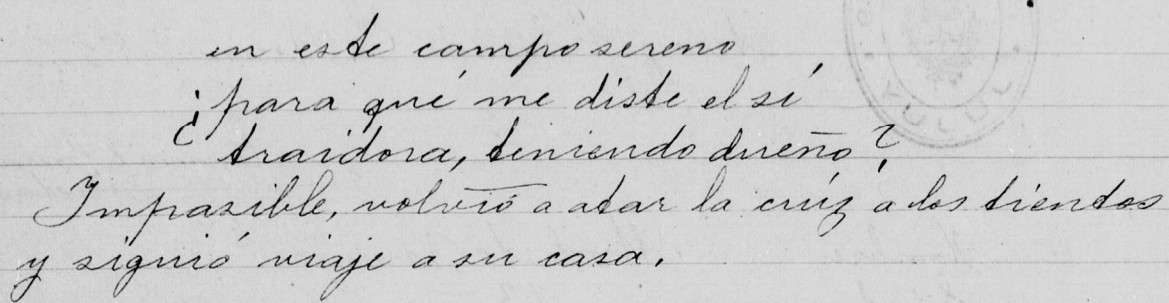 en este campo sereno
¿para qué me diste el sí
traidora, teniendo dueño?
Impasible, volvió a atar la crúz a los tientos
y siguió viaje a su casa.